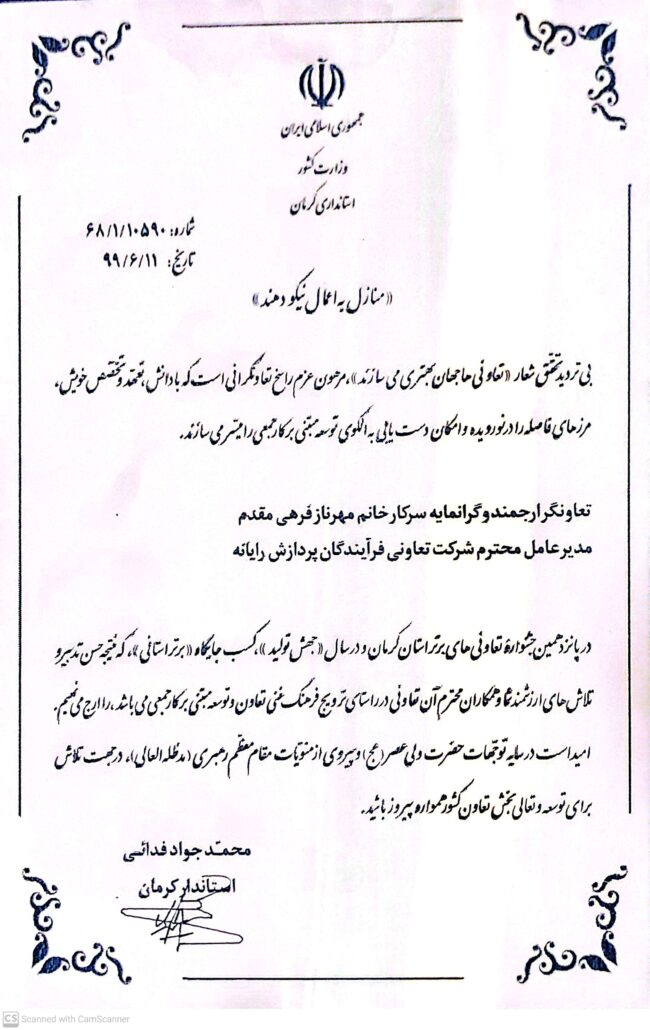 جمهوری اسلامی ایران
وزارت کشور
استانداری کرمان
شماره: ۶۸/۱/۱۰۵۹۰
تاریخ: ۹۹/۶/۱۱
«منازل به اعمال نیکو دهند»
بی تردید تحقق شعار «تعاونی ها جهان بهتری می سازند»، مرهون عزم راسخ تعاونگرانی است که با دانش، تعهد و تخصص خویش،
مرزهای فاصله را درنوردیده و امکان دست یابی به الگوی توسعه مبتنی بر کار جمعی را میسّر می سازند.
تعاونگر ارجمند و گرانمایه سرکار خانم مهرناز فرهی مقدم
مدیر عامل محترم شرکت تعاونی فرآیندگان پردازش رایانه
در پانزدهمین جشنوارهٔ تعاونی های برتر استان کرمان و در سال «جهش تولید»، کسب جایگاه «برتر استانی»، که نتیجه حسن تدبیر و
تلاش های ارزشمند شما و همکاران محترم آن تعاونی در راستای ترویج فرهنگ غنی تعاون و توسعه مبتنی بر کار جمعی می باشد، را ارج می نهیم.
امید است در سایه توجّهات حضرت ولی عصر (عج) و پیروی از منویات مقام معظّم رهبری (مدظله العالی)، در جهت تلاش
برای توسعه و تعالی بخش تعاون کشور همواره پیروز باشید.
محمّد جواد فدائی
استاندار کرمان
CS Scanned with CamScanner